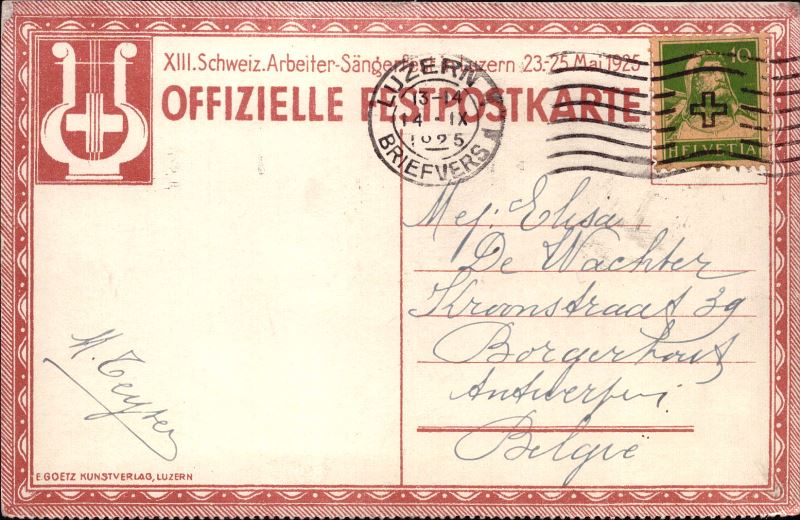 XIII. Schweiz. Arbeiter-Sängerfest Luzern 23.-25. Mai 1925
OFFIZIELLE FESTPOSTKARTE
LUZERN
13-14
14-IX
1925
BRIEFVERS
10
HELVETIA
Mej. Elisa
De Wachter
Kroonstraat 39
Borgerhout
Antwerpen
Belgie
E. GOETZ KUNSTVERLAG, LUZERN